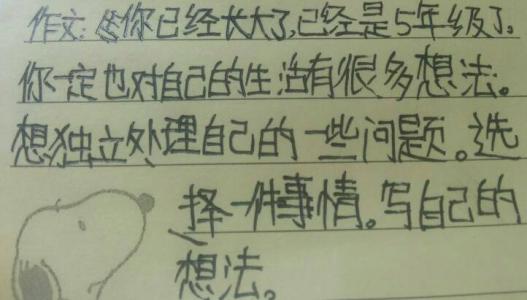 作文:你已经长大了,已经是5年级了。
你一定也对自己的生活有很多想法。
想独立处理自己的一些问题。选
择一件事情。写自己的
想法。